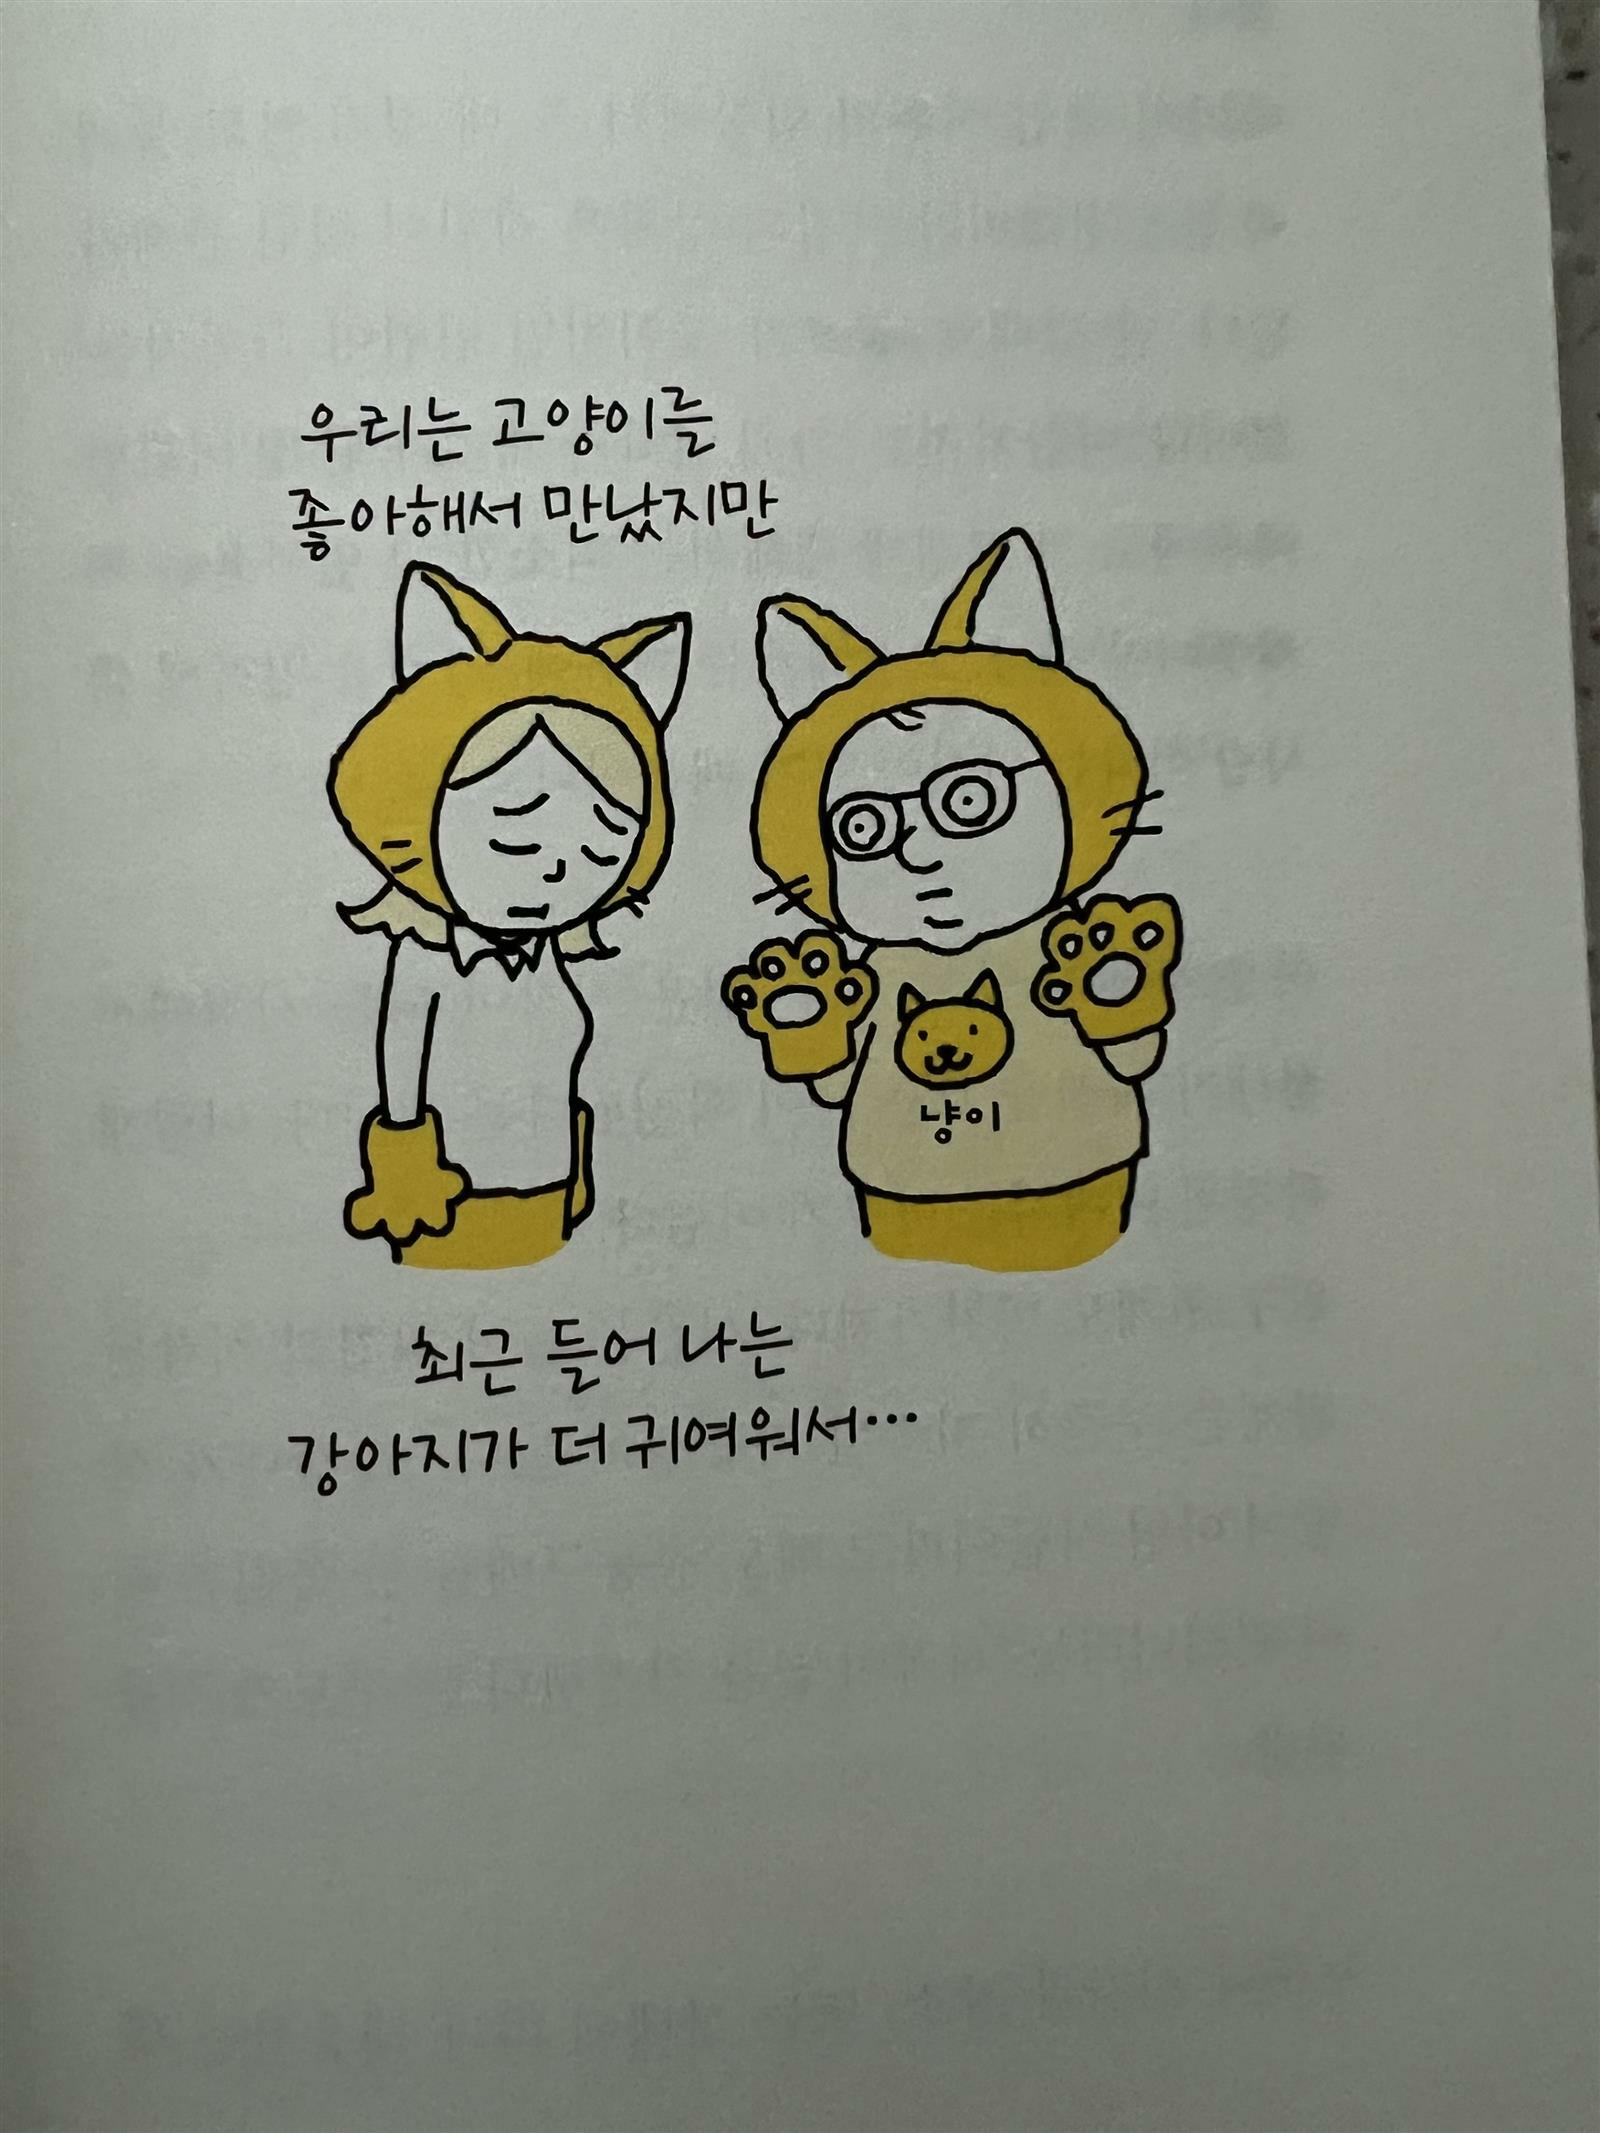 우리는 고양이를
좋아해서 만났지만
냥이
최근 들어 나는
강아지가 더 귀여워서…